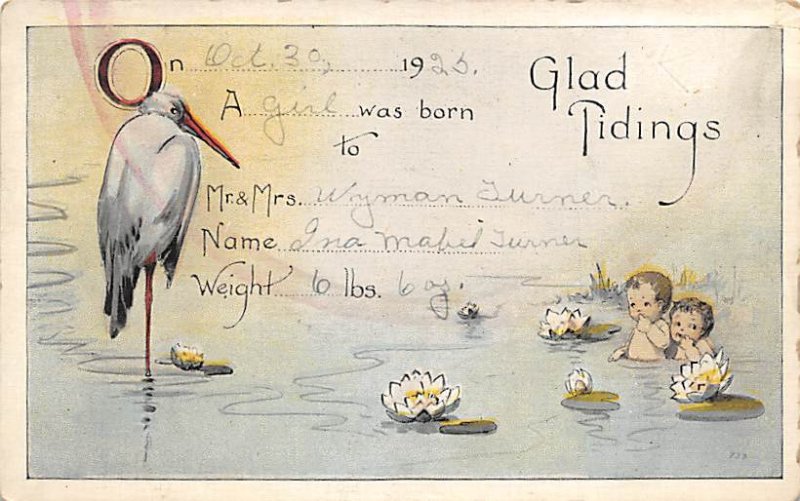 On Oct. 30, 1925.
Glad
Tidings
A girl was born
to
Mr. & Mrs. Wyman Turner.
Name Ina Mabel Turner
Weight 6 lbs. 6 oz.